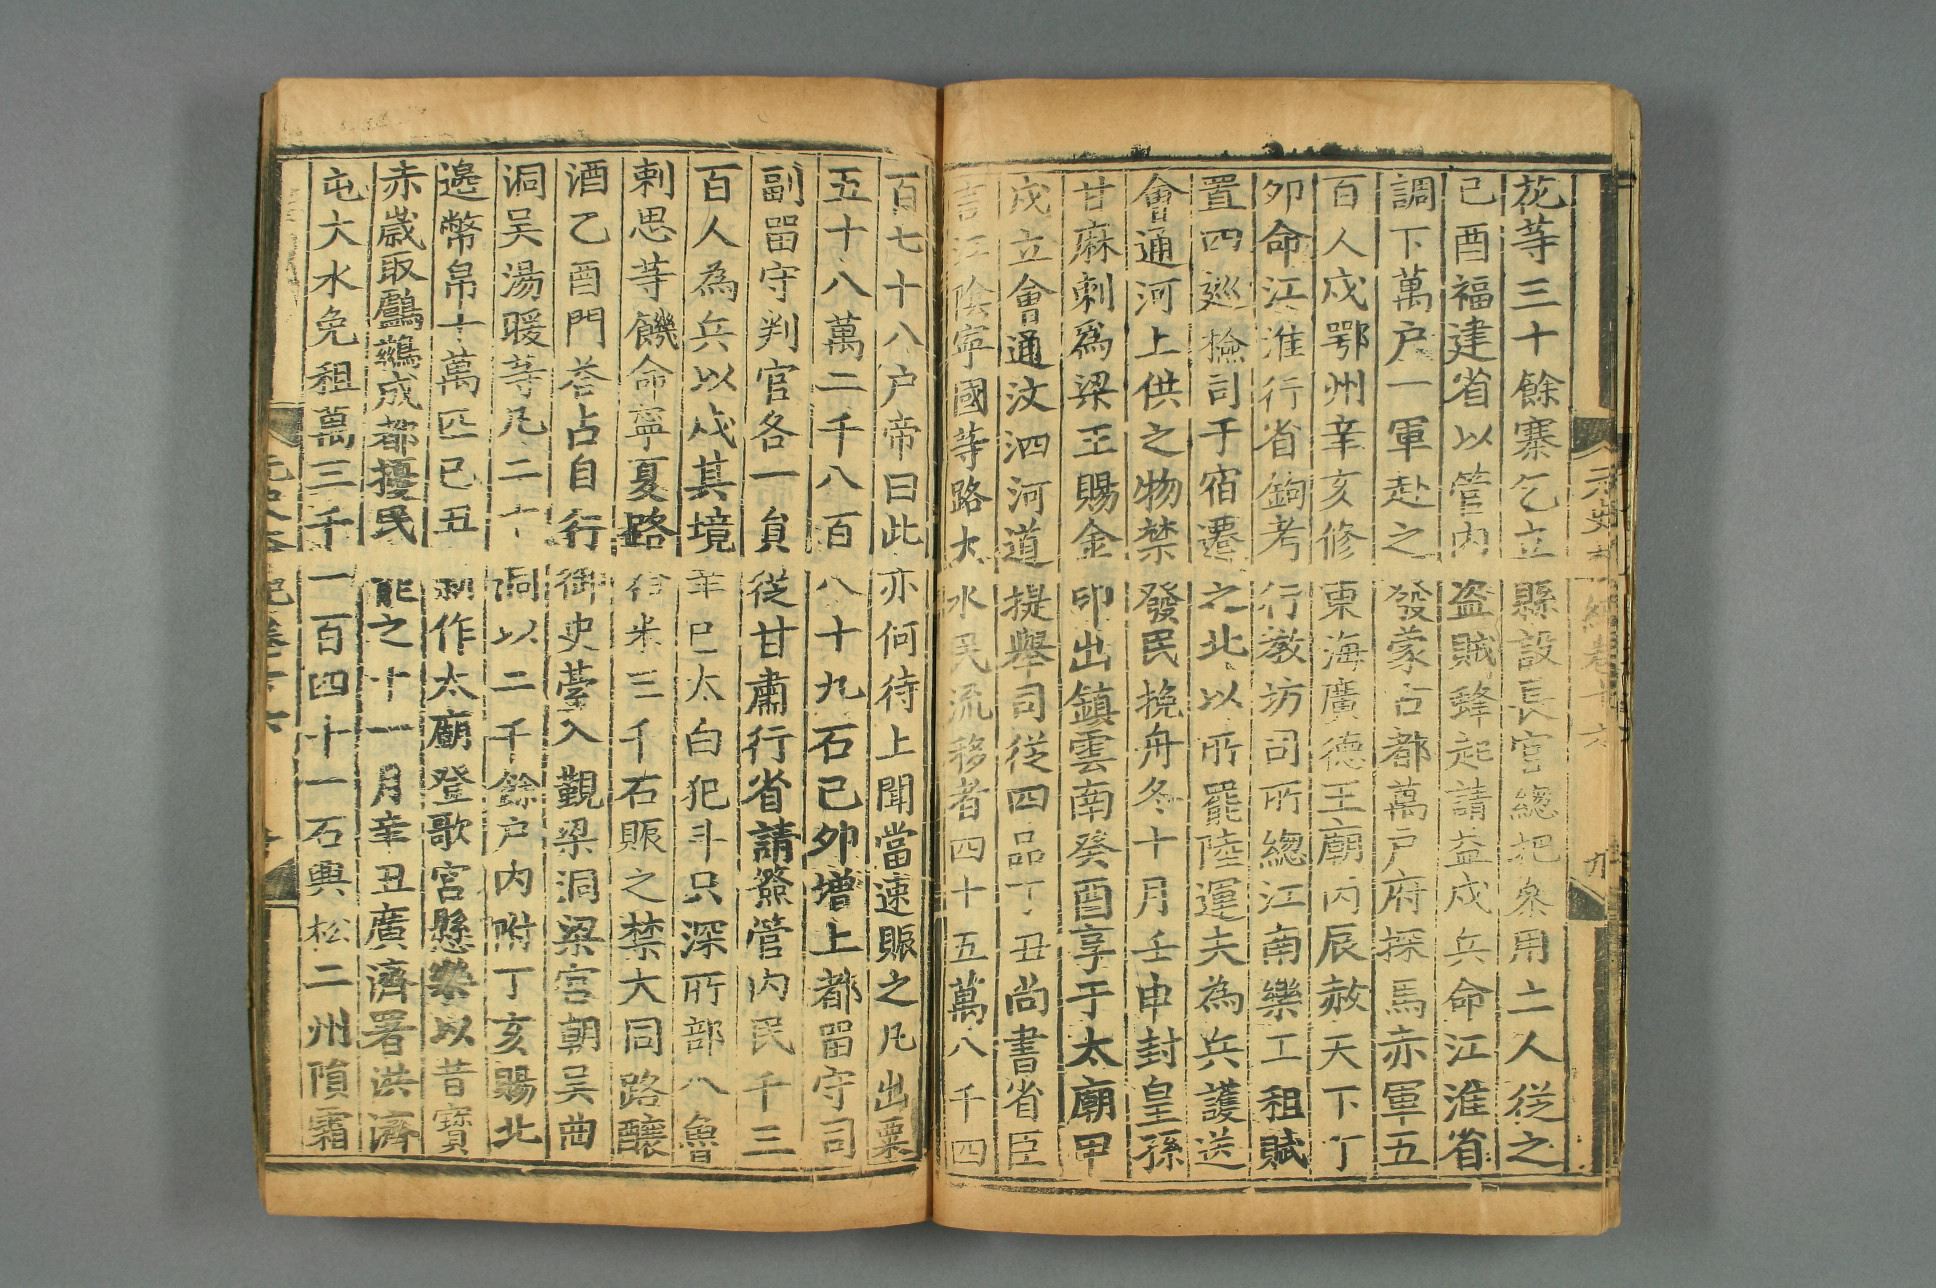 花等三十餘寨乞立縣設長官總把叅用土人從之
己酉福建省以管內盗賊蜂起請益戍兵命江淮省
調下萬户一軍赴之發蒙古都萬户府探馬赤軍五
百人戍鄂州辛亥修東海廣德王廟丙辰赦天下丁
夘命江淮行省鉤考行教坊司所總江南樂工租賦
置四廵檢司于宿遷之北以所罷陸運夫為兵護送
會通河上供之物禁發民挽舟冬十月壬申封皇孫
甘麻剌爲梁王賜金印出鎮雲南癸酉享于太廟甲
戌立會通汶泗河道提舉司從四品丁丑尚書省臣
言江陰寧國等路大水民流移者四十五萬八千四
百七十八户帝曰此亦何待上聞當速賑之凡出粟
五十八萬二千八百八十九石己夘增上都留守司
副留守判官各一員從甘肅行省請簽管内民千三
百人為兵以戍其境辛巳太白犯斗只深所部八魯
剌思等饑命寧夏路給米三千石賑之禁大同路釀
酒乙酉門荅占自行御史臺入覲梁洞梁宫朝吴曲
洞吴湯暖等凡二十洞以二千餘户内附丁亥賜北
邊幣帛十萬匹己丑 勑作太廟登歌宫懸樂以昔寶
赤歳取鸕鶿成都擾民罷之十一月辛丑廣濟署洪濟
屯大水免租萬三千一百四十一石興松二州隕霜
元史本紀卷十六
九